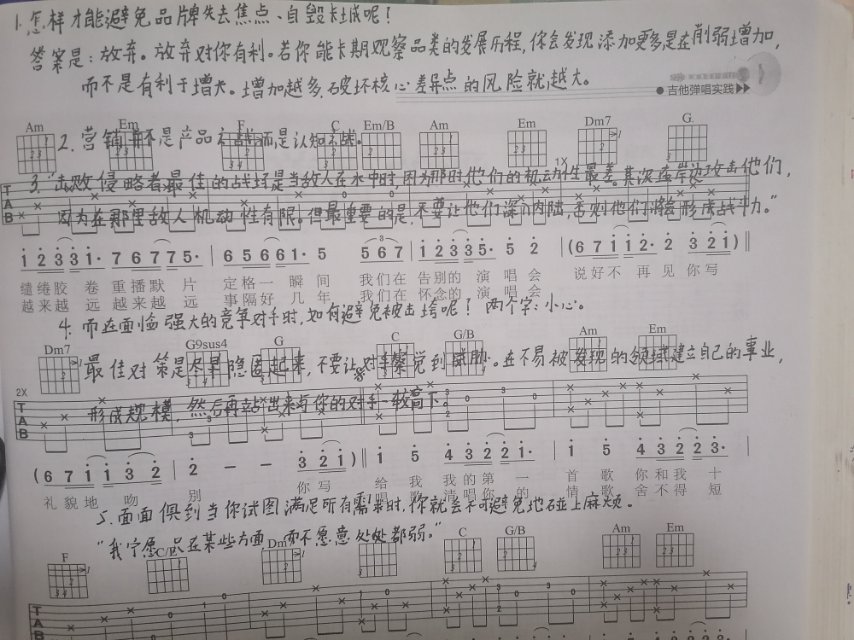 1. 怎样才能避免品牌失去焦点、自毁长城呢！
答案是：放弃。放弃对你有利。若你能长期观察品类的发展历程，你会发现添加更多是在削弱增加，
而不是有利于增长。增加越多，破坏核心差异点的风险就越大。
●吉他弹唱实践▶▶
Am Em F C Em/B Am Em Dm7 G
2. 营销并不是产品之战而是认知之战。
1X
3. "击败侵略者最佳的战场是当敌人在水中时，因为那时他们的机动性最差。其次海岸边攻击他们，
因为在那里敌人机动性有限。但最重要的是，不要让他们深入内陆，否则他们将会形成战斗力。"
i 2 3 3 1· 7 6 7 7 5· | 6 5 6 6 1· 5 5 6 7 | i 2 3 3 5 5 2 | (6 7 1 1 2· 2 3 2 1)
缱绻胶 卷 重播默 片 定格一 瞬间 我们在 告别的 演 唱会 说好不 再见 你写
越来越 远 越来越 远 事隔好 几年 我们在 怀念的 演 唱会
4. 而在面临强大的竞争对手时，如何避免被击垮呢！两个字：小心。
Dm7 G9sus4 G C G/B Am Em
最佳对策是尽量隐匿起来，不要让对手察觉到威胁。在不易被发现的领域建立自己的事业，
2X
形成规模，然后再站出来与你的对手一较高下。
(6 7 1 1 3 2 | 2 - - 3 2 1) | 1 5 4 3 2 2 1· | 1 5 4 3 2 2 3·
礼貌地 吻 别 你写 给 我 我的第 一 首 歌 你和我 十
唱 歌 清唱你 的 情 歌 舍不得 短
5. 面面俱到当你试图满足所有需求时，你就会不可避免地碰上麻烦。
"我宁愿只在某些方面，而不愿意处处都弱。"
F C/E Dm C G/B Am Em